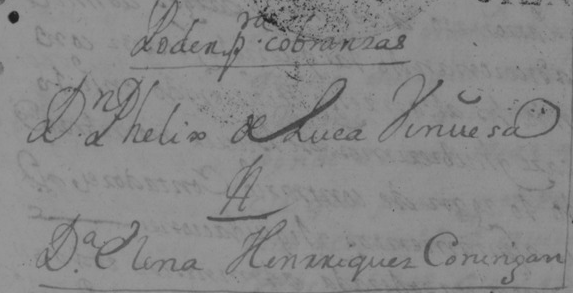 Poder pª. cobranzas
D.n Phelix de Luca Vinuesa
A
D.ª Elena Henrriquez Coningan